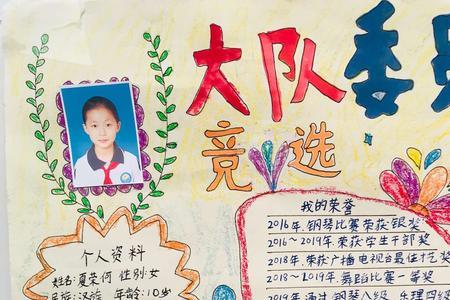 大队委员
竞选
个人资料
姓名:夏荣何 性别:女
民族:汉族 年龄:10岁
我的荣誉
2016年.钢琴比赛荣获银奖
2016~2019年.荣获学生干部奖
2018年.荣获广播电视台最佳才艺奖
2018~2019年.舞蹈比赛一等奖
2019年.通过钢琴八级.乐理四级